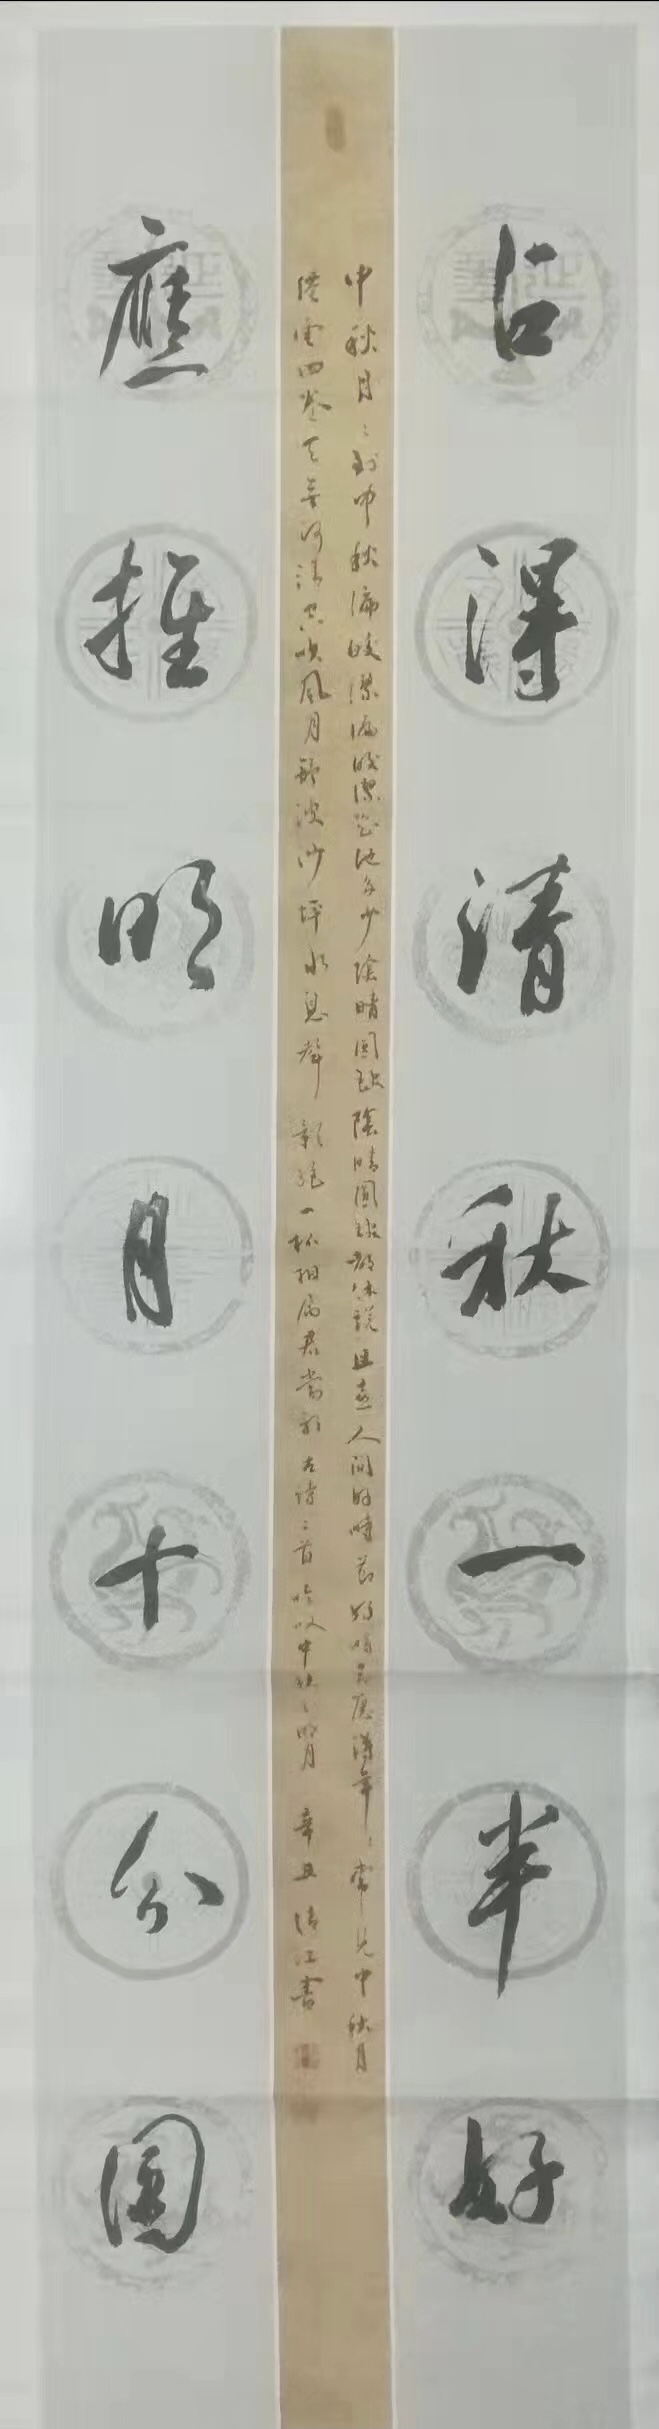 占得清秋一半好
中秋月〻到中秋偏皎潔偏皎潔知他多少陰晴圓缺陰晴圓缺都休說且喜人間好時節好時節願得年〻常見中秋月
纖雲四卷天無河清風吹空月舒波沙坪水息聲影絕一杯相屬君當歌 古詩二首吟以中秋之明月 辛丑 清江書
應推明月十分圓